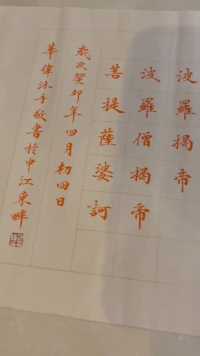 波羅揭帝
波羅僧揭帝
菩提薩婆訶
歲次癸卯年四月初四日
華偉沐手敬書於中江東畔